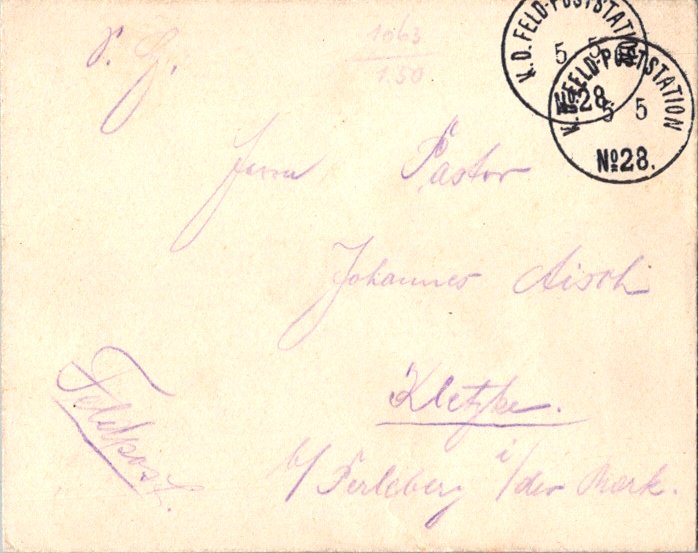 S. G.
1063
1.50
K.D. FELD-POSTSTATION
5 5
No 28
K.D. FELD-POSTSTATION
5 5
No 28.
Herrn Pastor
Johannes Aisch
Kletzke.
Feldpost.
b/ Perleberg i/ der Mark.